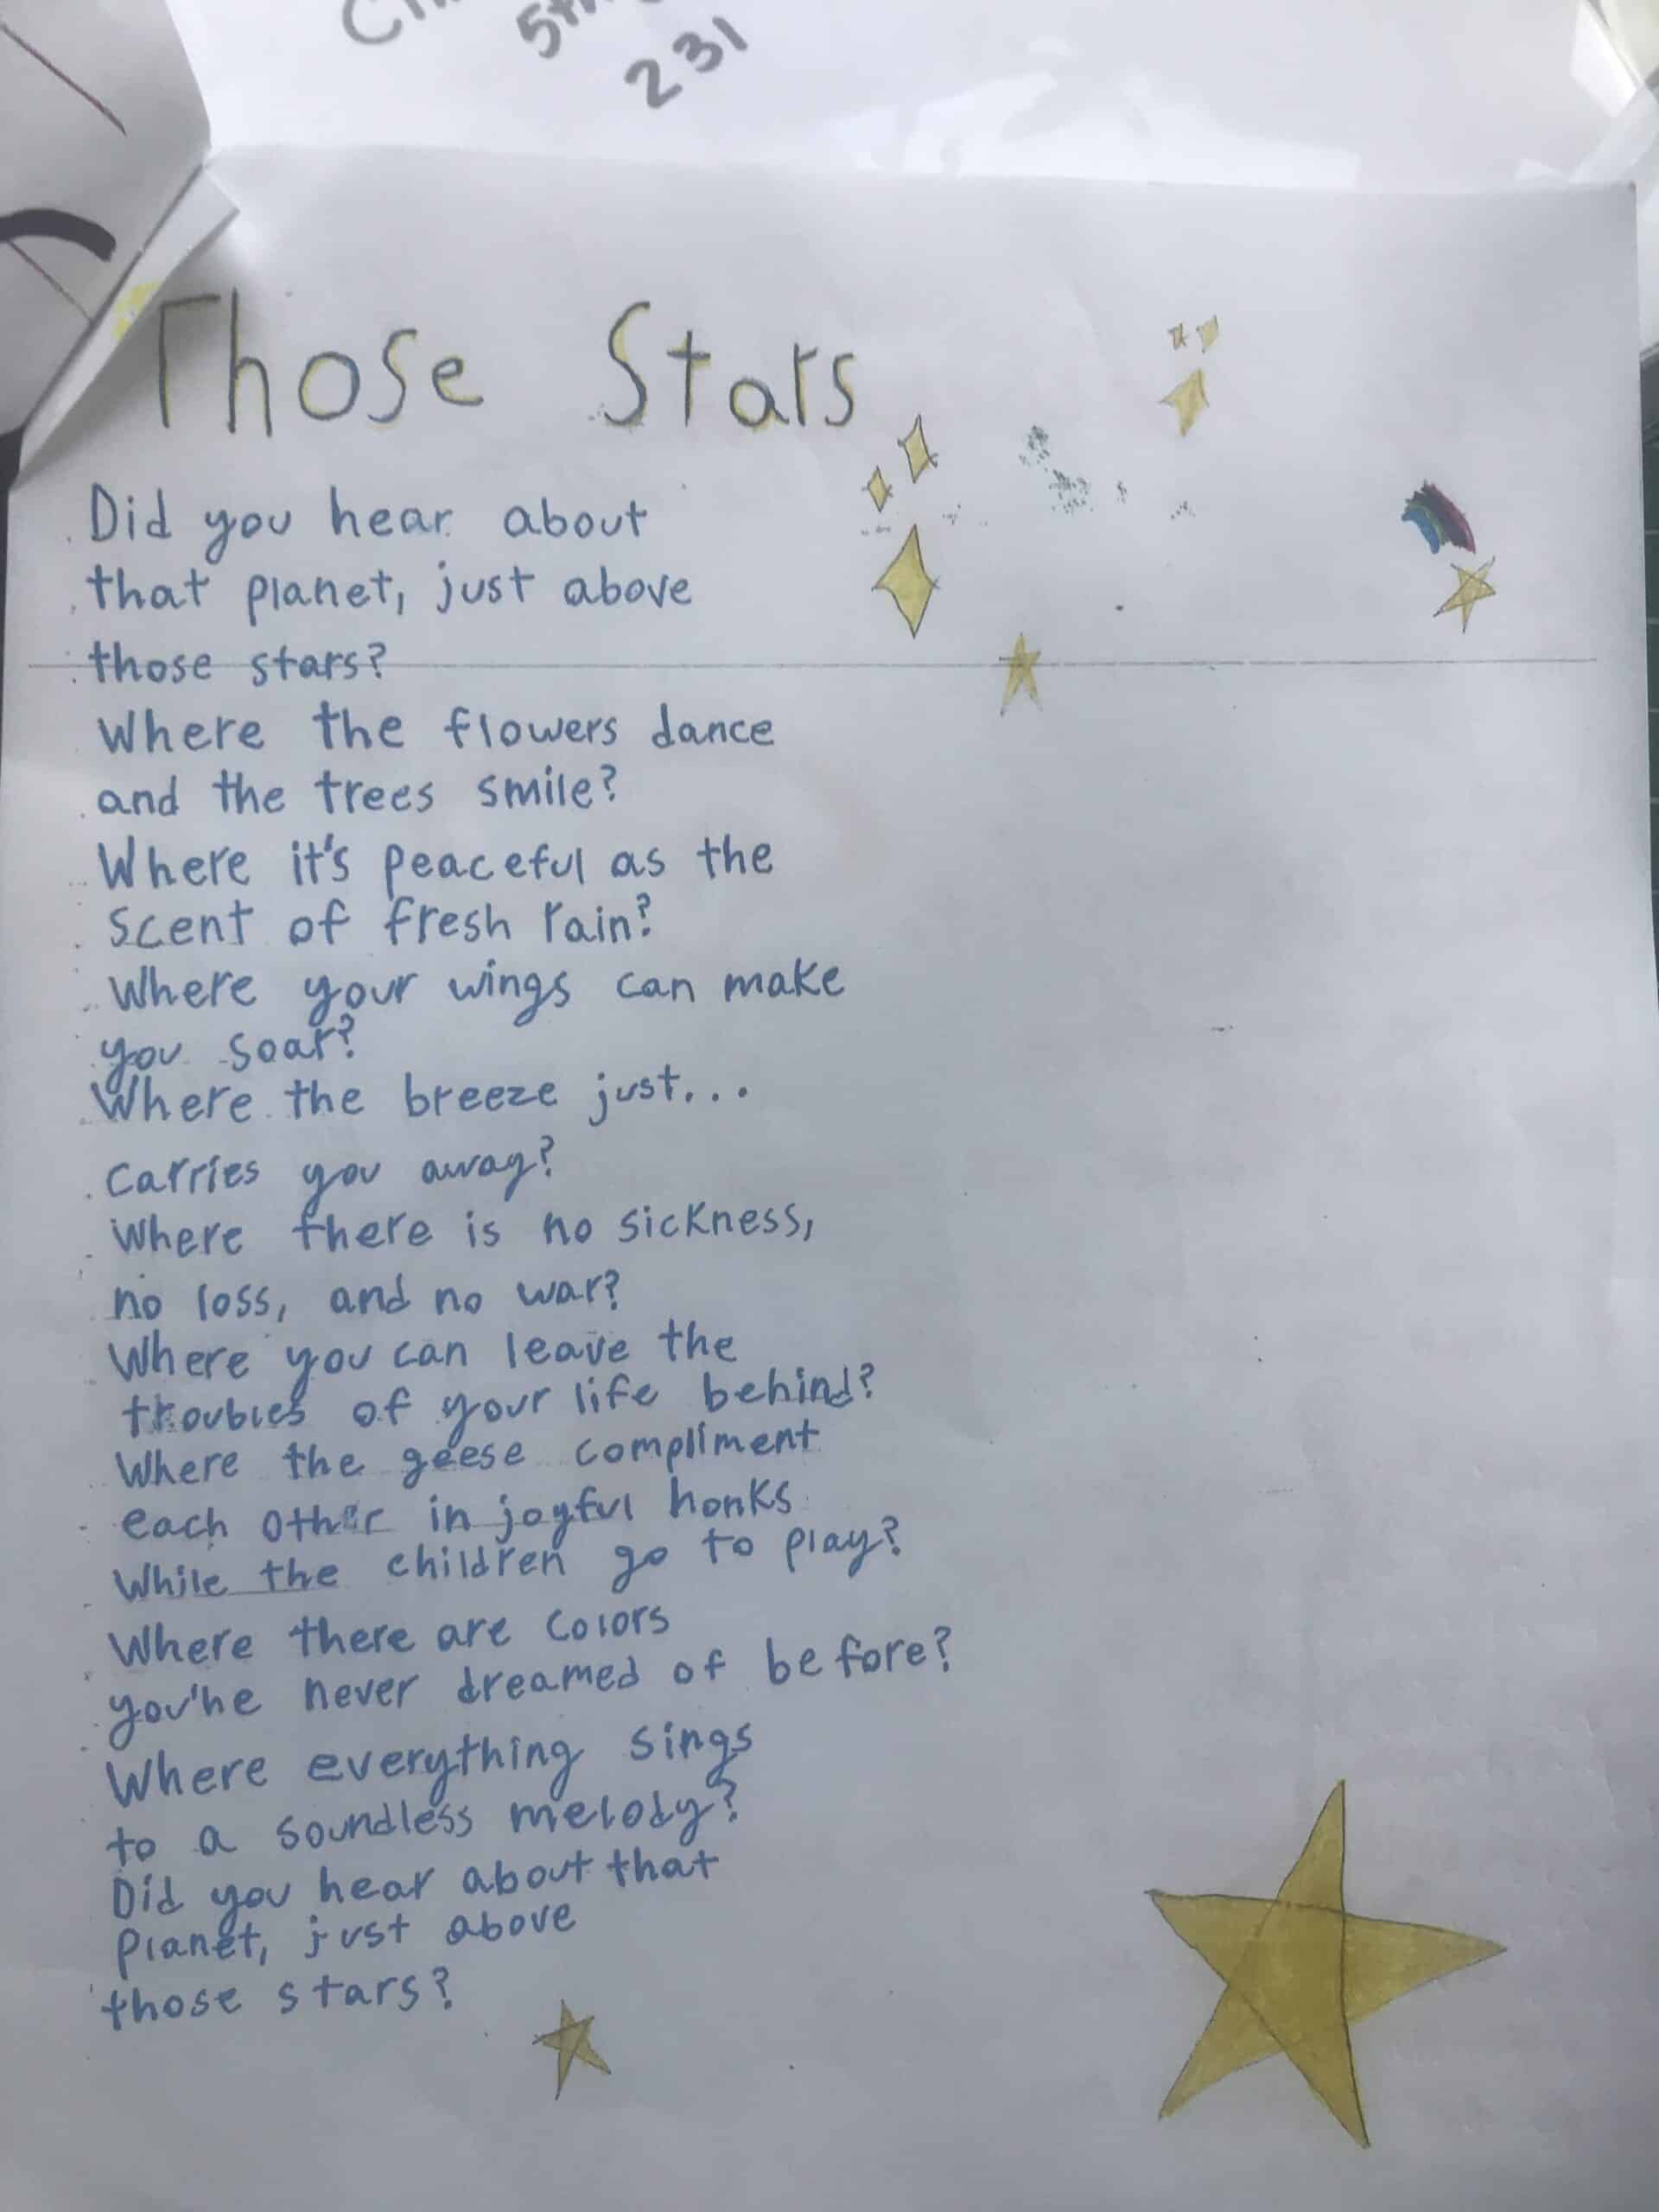 231
Those Stars
Did you hear about
that planet, just above
those stars?
Where the flowers dance
and the trees smile?
Where it's peaceful as the
scent of fresh rain?
Where your wings can make
you soar?
Where the breeze just...
carries you away?
Where there is no sickness,
no loss, and no war?
Where you can leave the
troubles of your life behind?
Where the geese compliment
each other in joyful honks
While the children go to play?
Where there are colors
you've never dreamed of before?
Where everything sings
to a soundless melody?
Did you hear about that
Planet, just above
those stars?